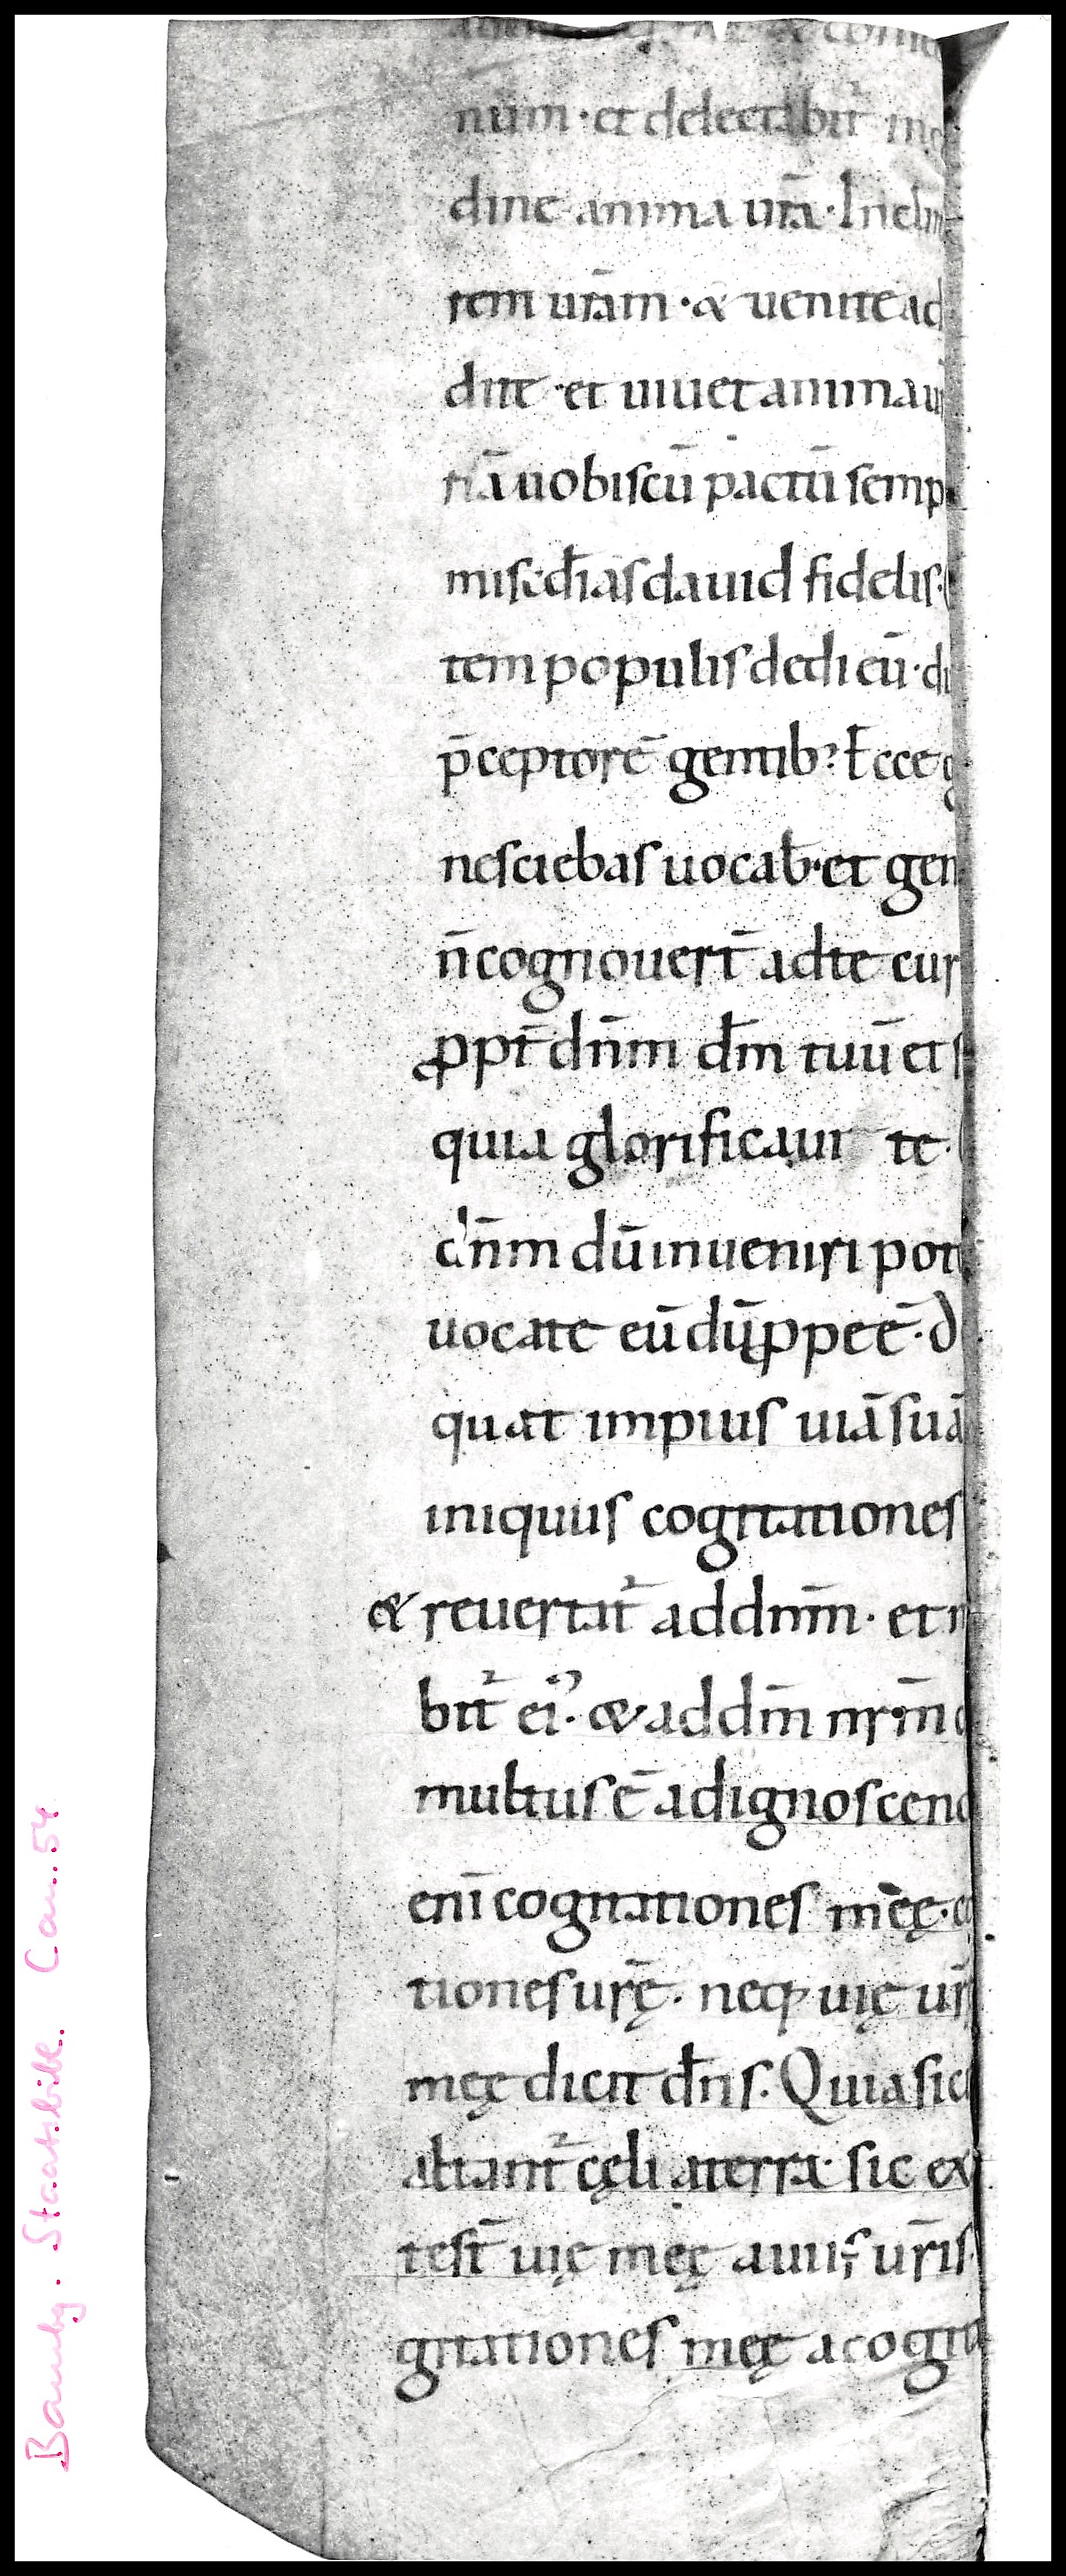 num · et delectabit᷑ in
dine anima ur̄a · Inclin
rem ur̄am · & uenite ad
dite · et uiuet anima u
riā uobiscū pactū semp
misc̄dias dauid fidelis ·
tem populis dedi eū · du
p̄ceptorē gentib; Ecce g
nesciebas uocab · et gen
n̄ cognouer̄t ad te cur
ꝓpt̄ dn̄m dm̄ tuū et s
quia glorificauit te ·
dn̄m dū inueniri pot
uocate eū dū ꝓpe ē · D
quat impius uiā suā
iniquus cogitationes
& reuertat᷑ ad dnm̄ · et m
bit᷑ ei᾽ · & ad dm̄ nrm̄
multus ē ad ignoscend
eni̅ cogitationes meę · c
tiones ur̄ę · neq; uię ur̄
meę dicit dn̄s · Quia sic
altant᷑ cęli a terra · sic ex
test̄ uię meę a uiis ur̄is
gitationes meę a cogita
Bambg. Staatsbibl. Can. 54